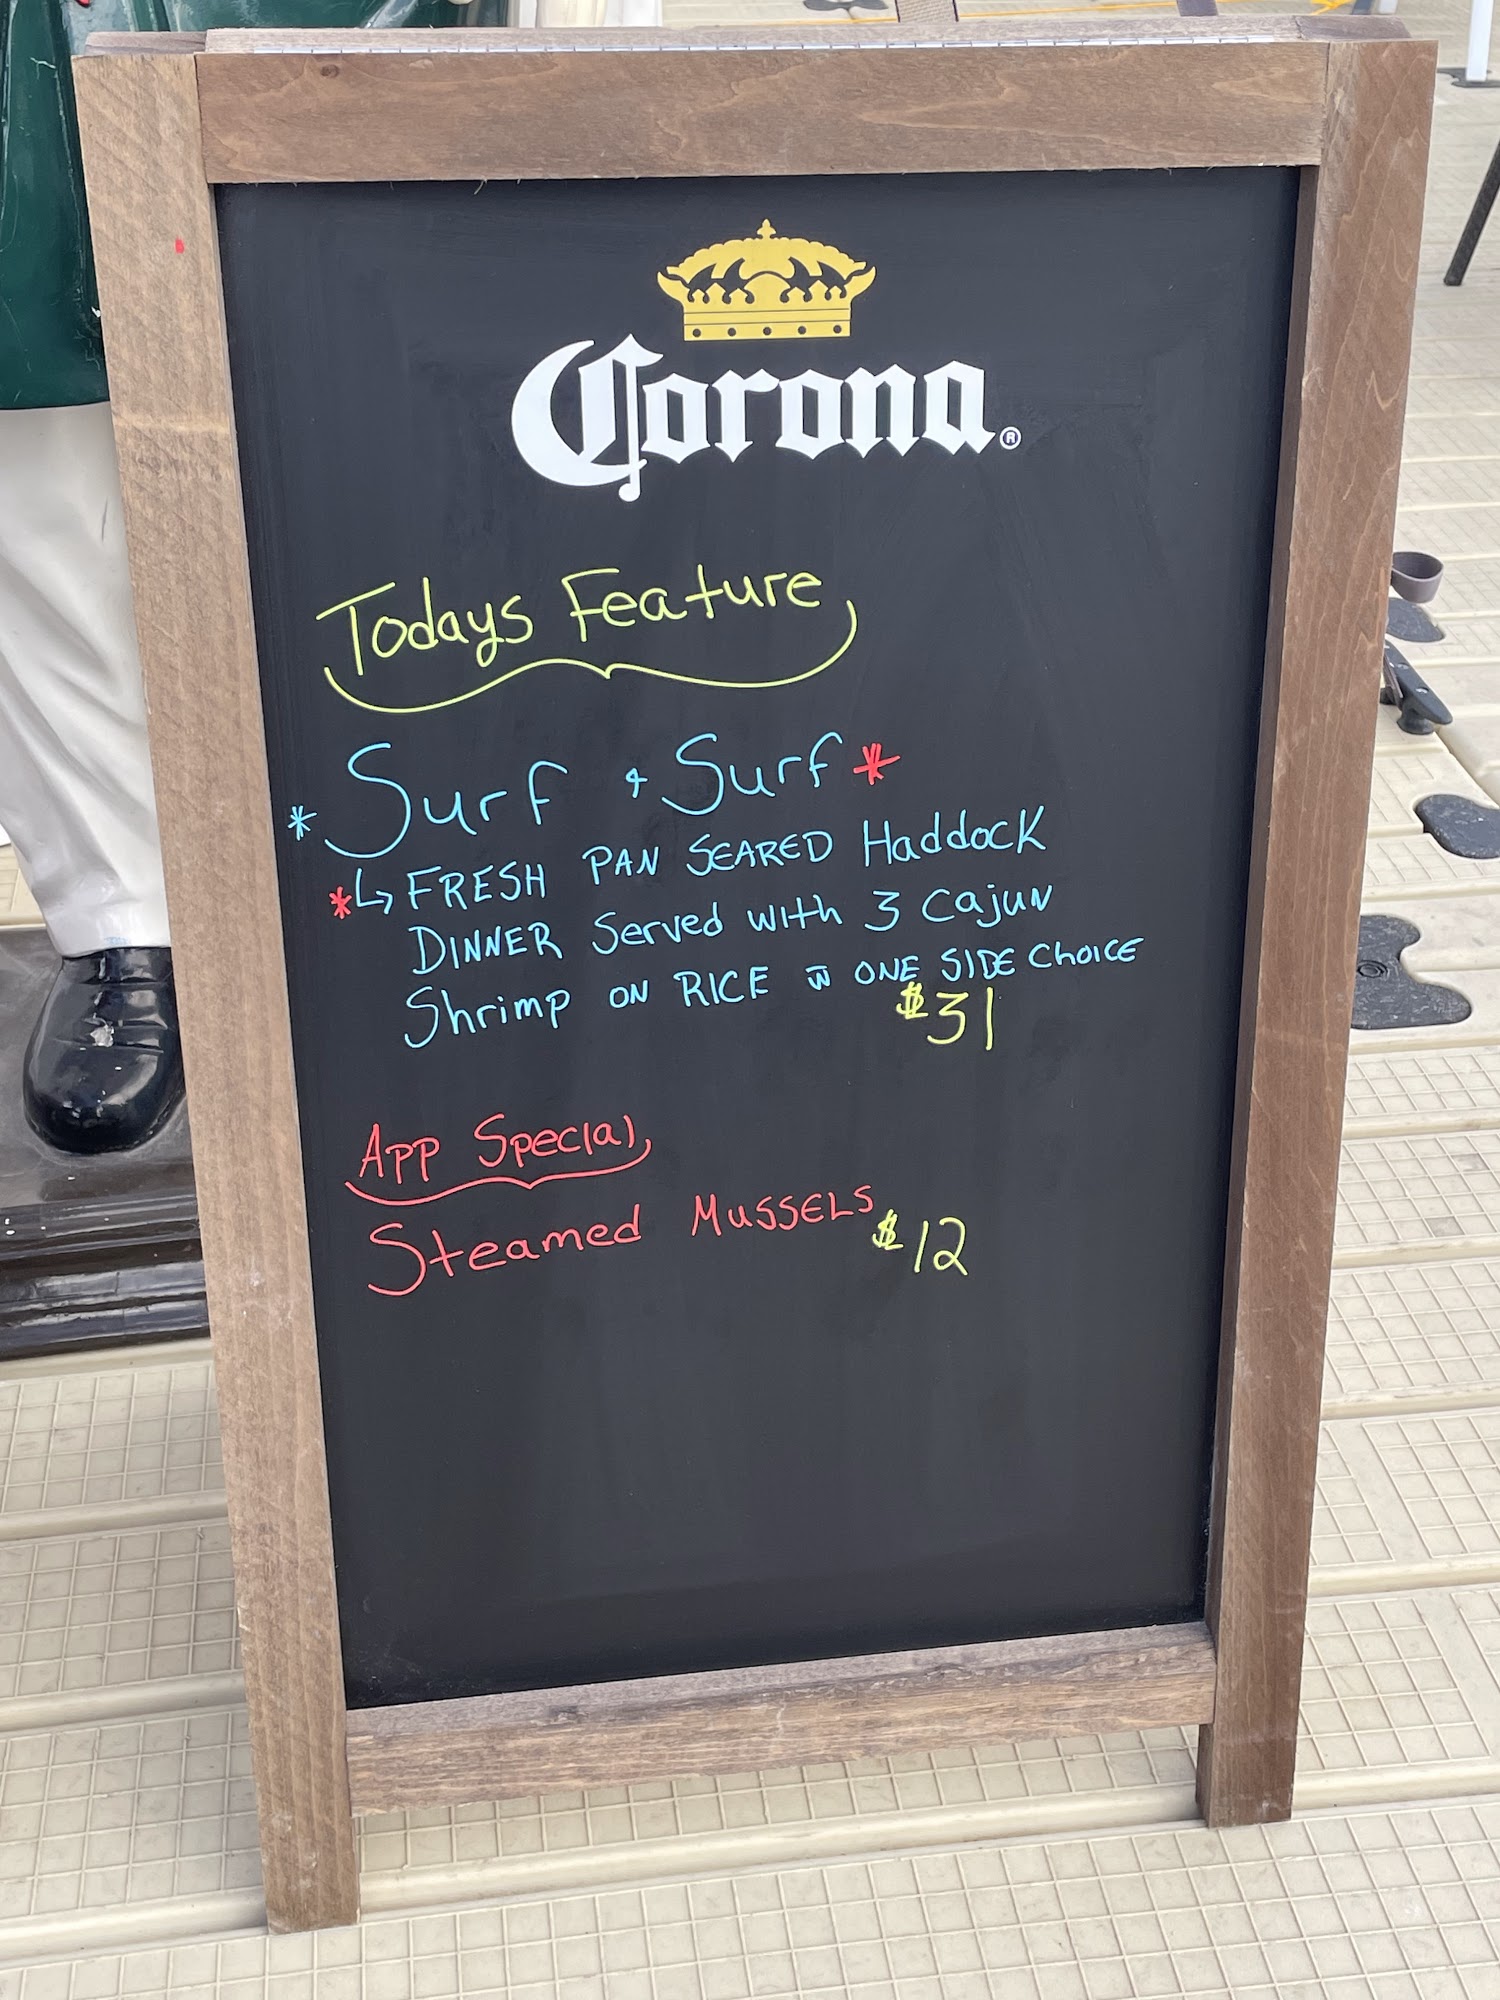 Corona®
Todays Feature
* Surf & Surf *
* ↳ FRESH PAN SEARED Haddock
DINNER Served with 3 Cajun
Shrimp on RICE w ONE SIDE Choice
$31
App Special
Steamed Mussels
$12